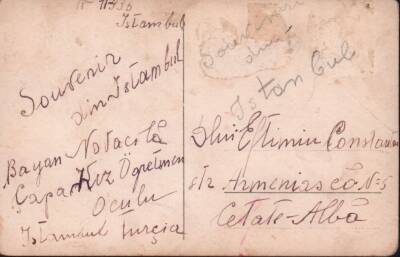 Istambul
Souvenir
din Istambul
Bayan Notacolă
Çapa Kız Öğretmen
Oculu
Istambul Turcia
Souvenir
din
Istanbul
Dlui Eftimiu Constantin
str. Armenească No 5
Cetate-Albă